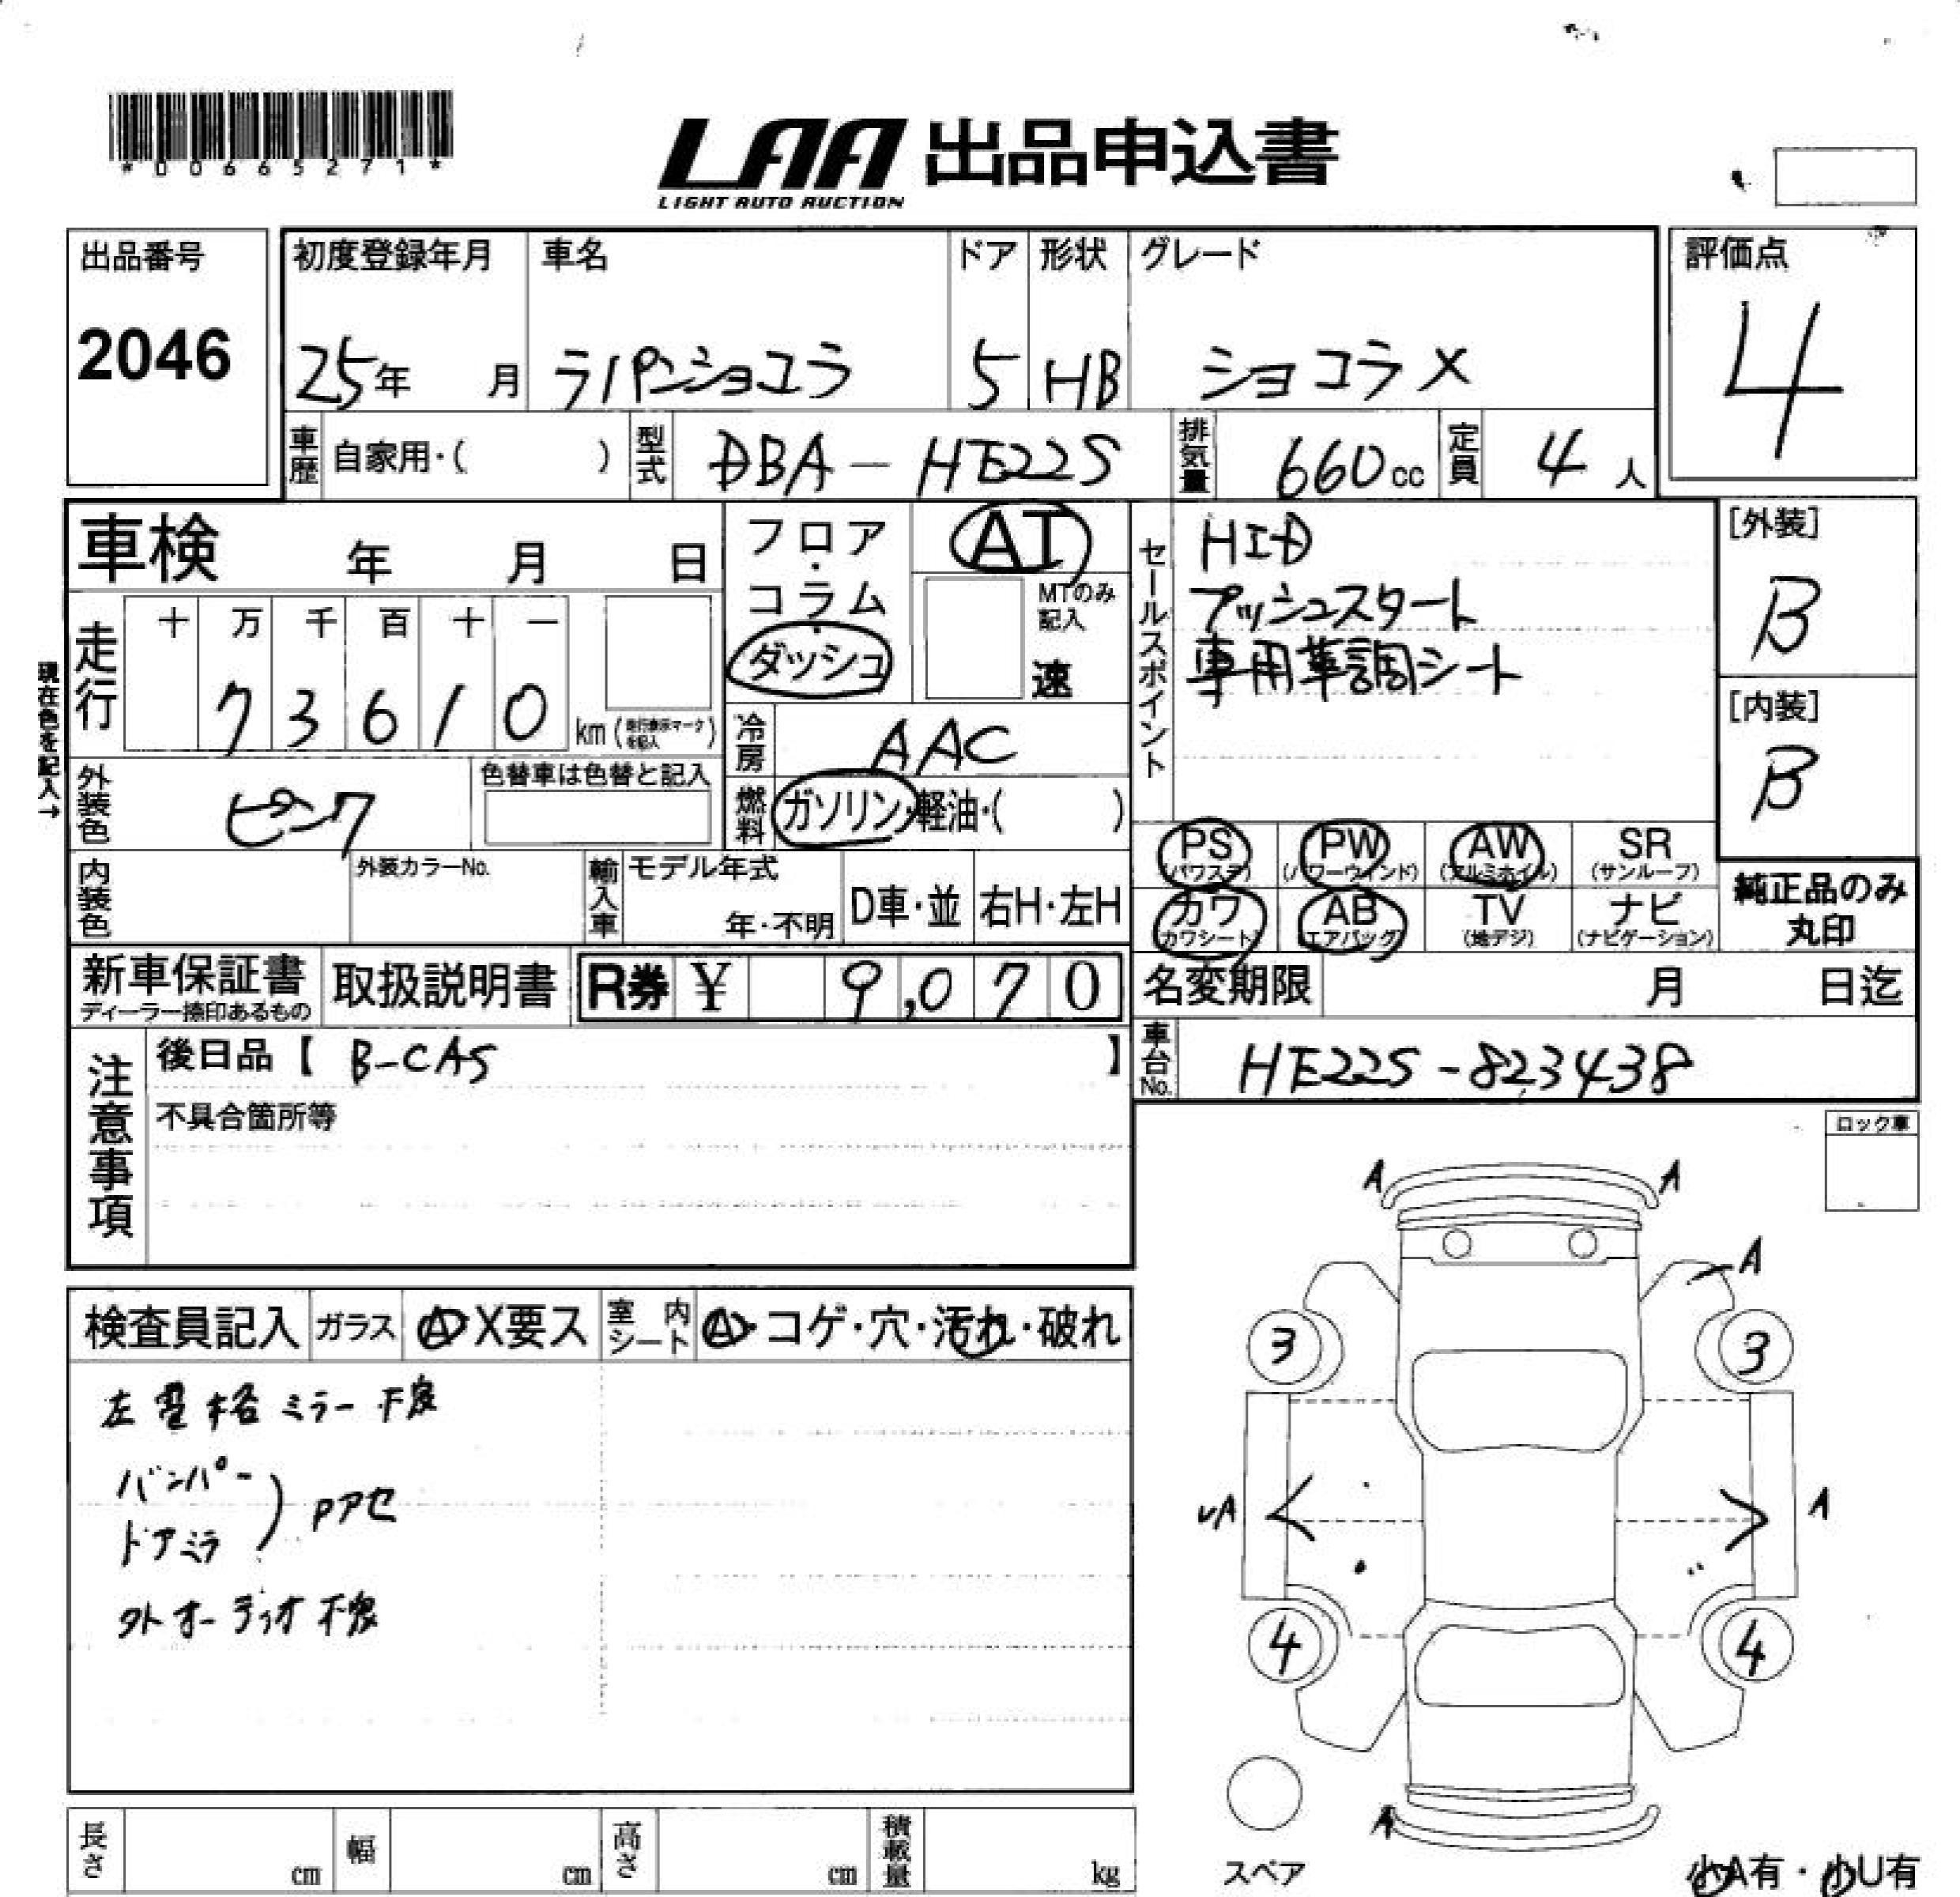 *00665271*
LAA 出品申込書
LIGHT AUTO AUCTION
出品番号
2046
初度登録年月
25年 月
車名
ラパンショコラ
ドア
5
形状
HB
グレード
ショコラX
評価点
4
車歴 自家用・( )
型式 DBA-HE22S
排気量 660cc
定員 4人
車検 年 月 日
フロア・コラム・ダッシュ
AT
MTのみ記入
速
セールスポイント
HID
プッシュスタート
専用革調シート
[外装]
B
[内装]
B
現在色を記入→
走行
十 万 千 百 十 一
7 3 6 1 0 km
冷房 AAC
外装色 ピンク
色替車は色替と記入
燃料 ガソリン・軽油・( )
内装色
外装カラーNo.
輸入車
モデル年式
年・不明
D車・並
右H・左H
PS (パワステ)
PW (パワーウインド)
AW (アルミホイル)
SR (サンルーフ)
カワ (カワシート)
AB (エアバッグ)
TV (地デジ)
ナビ (ナビゲーション)
純正品のみ
丸印
新車保証書
ディーラー捺印あるもの
取扱説明書
R券 ¥ 9,070
名変期限 月 日迄
注意事項
後日品【 B-CAS 】
不具合箇所等
車台No. HE22S-823438
ロック車
検査員記入
ガラス A・X要ス
室内シート A・コゲ・穴・汚れ・破れ
左電格ミラー不良
バンパー
ドアミラ
Pアセ
外オーディオ不良
A A
A
3 3
A A
4 4
A
スペア
小A有・小U有
長さ cm
幅 cm
高さ cm
積載量 kg